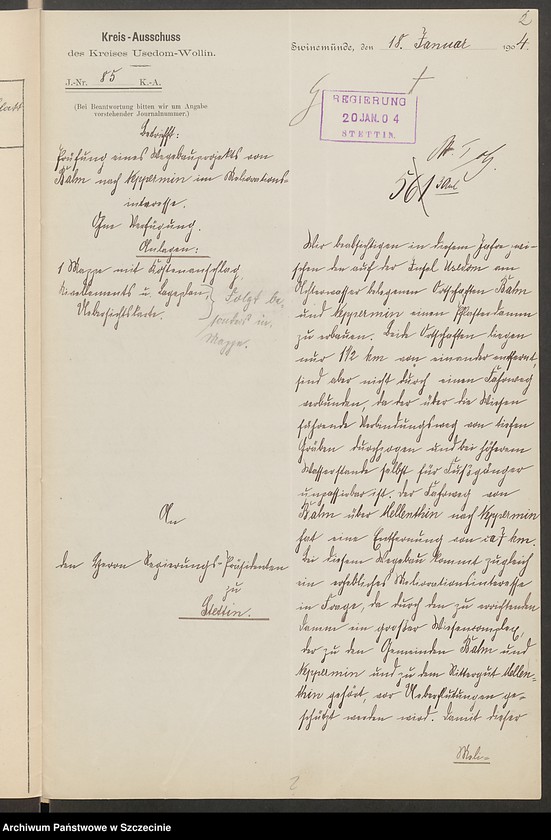 2
Kreis-Ausschuss
des Kreises Usedom-Wollin.
J.-Nr. 85 K.-A.
(Bei Beantwortung bitten wir um Angabe
vorstehender Journalnummer.)
Betrifft:
Prüfung eines Wegebauprojekts von
Balm nach Neppermin im Meliorations-
interesse.
Zur Verfügung.
Anlagen:
1 Mappe mit Kostenanschlag,
Nivellements u. Lageplan,
Uebersichtskarte.
Folgt be-
sonders in
Mappe.
An
den Herrn Regierungs-Präsidenten
zu
Stettin.
Swinemünde, den 18. Januar 1904.
REGIERUNG
20 JAN. 04
STETTIN
561
Wir beabsichtigen in diesem Jahre zwi-
schen den auf der Insel Usedom am
Achterwasser belegenen Ortschaften Balm
und Neppermin einen Pflasterdamm
zu erbauen. Beide Ortschaften liegen
nur 1 1/2 km von einander entfernt,
sind aber nicht durch einen Fahrweg
verbunden, da der über die Wiesen
führende Verbindungsweg von tiefen
Gräben durchzogen und bei höherem
Wasserstande selbst für Fußgänger
unpassierbar ist. Der Fahrweg von
Balm über Mellenthin nach Neppermin
hat eine Entfernung von ca 7 km.
Bei diesem Wegebau kommt zugleich
ein erhebliches Meliorationsinteresse
in Frage, da durch den zu errichtenden
Damm ein großer Wiesencomplex,
der zu den Gemeinden Balm und
Neppermin und zu dem Rittergut Mellen-
thin gehört, vor Ueberflutungen ge-
schützt werden wird. Damit dieser
Meli-
2
Archiwum Państwowe w Szczecinie